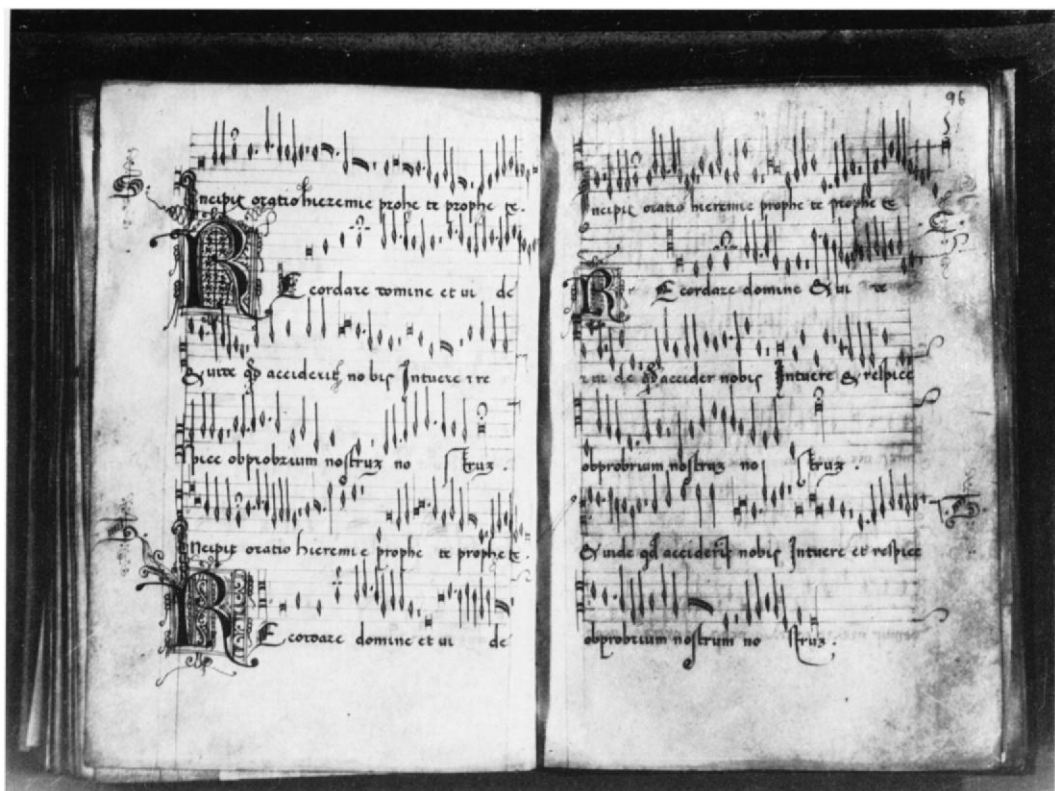 Incipit oratio hieremie prophe te prophe te.
R Ecordare domine et ui de
& uide qd acciderit nobis Intuere
spice obprobrium nostruz no struz.
Incipit oratio hieremie prophe te prophe te.
R Ecordare domine et ui de
96
Incipit oratio hieremie prophe te prophe te
R Ecordare domine & ui de
ui de qd accider nobis Intuere & respice
obprobrium nostruz no struz.
& uide qd acciderit nobis Intuere et respice
obprobrium nostrum no struz.